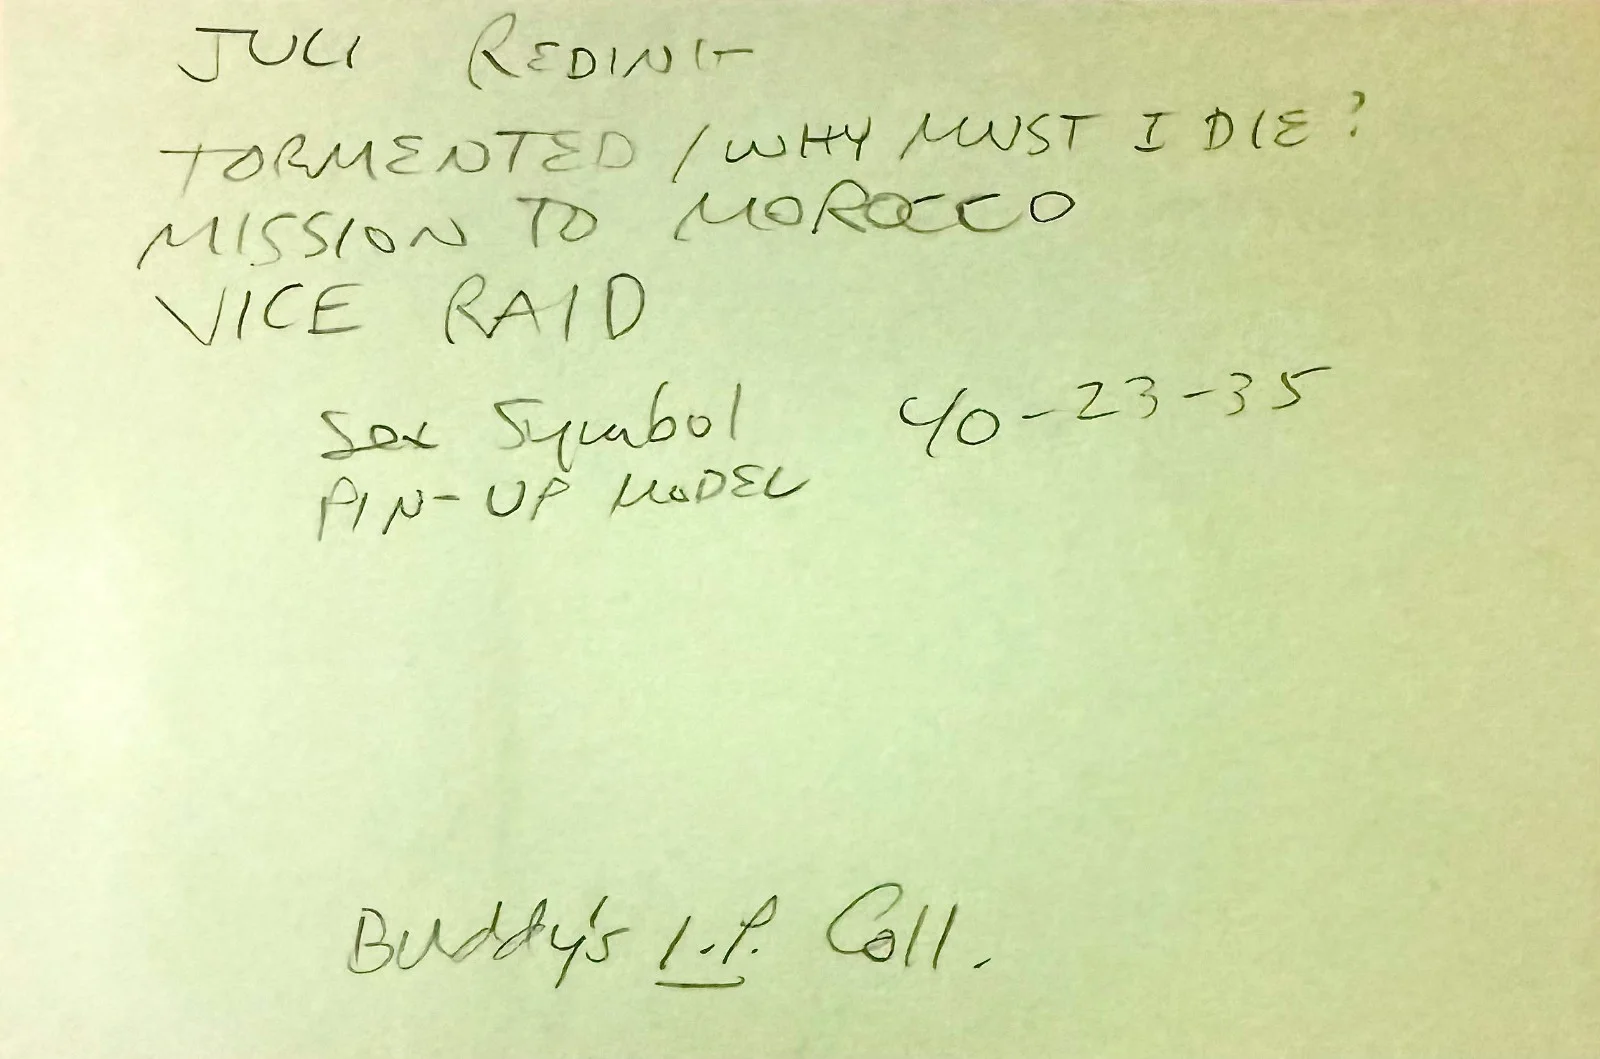 JULI REDING
TORMENTED / WHY MUST I DIE?
MISSION TO MOROCCO
VICE RAID
Sex Symbol 40-23-35
PIN-UP MODEL
Buddy's I.P. Coll.